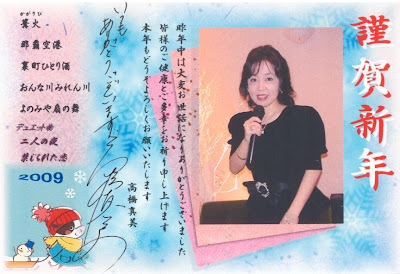 謹賀新年
昨年中は大変お世話になりありがとうございました
皆様のご健康とご多幸をお祈り申し上げます
本年もどうぞよろしくお願いいたします
高橋真美
いつも
ありがとうございます
かがりび
篝火
那覇空港
裏町ひとり酒
おんな川みれん川
よのみや扇の舞
デュエット曲
二人の夜
禁じられた恋
2009